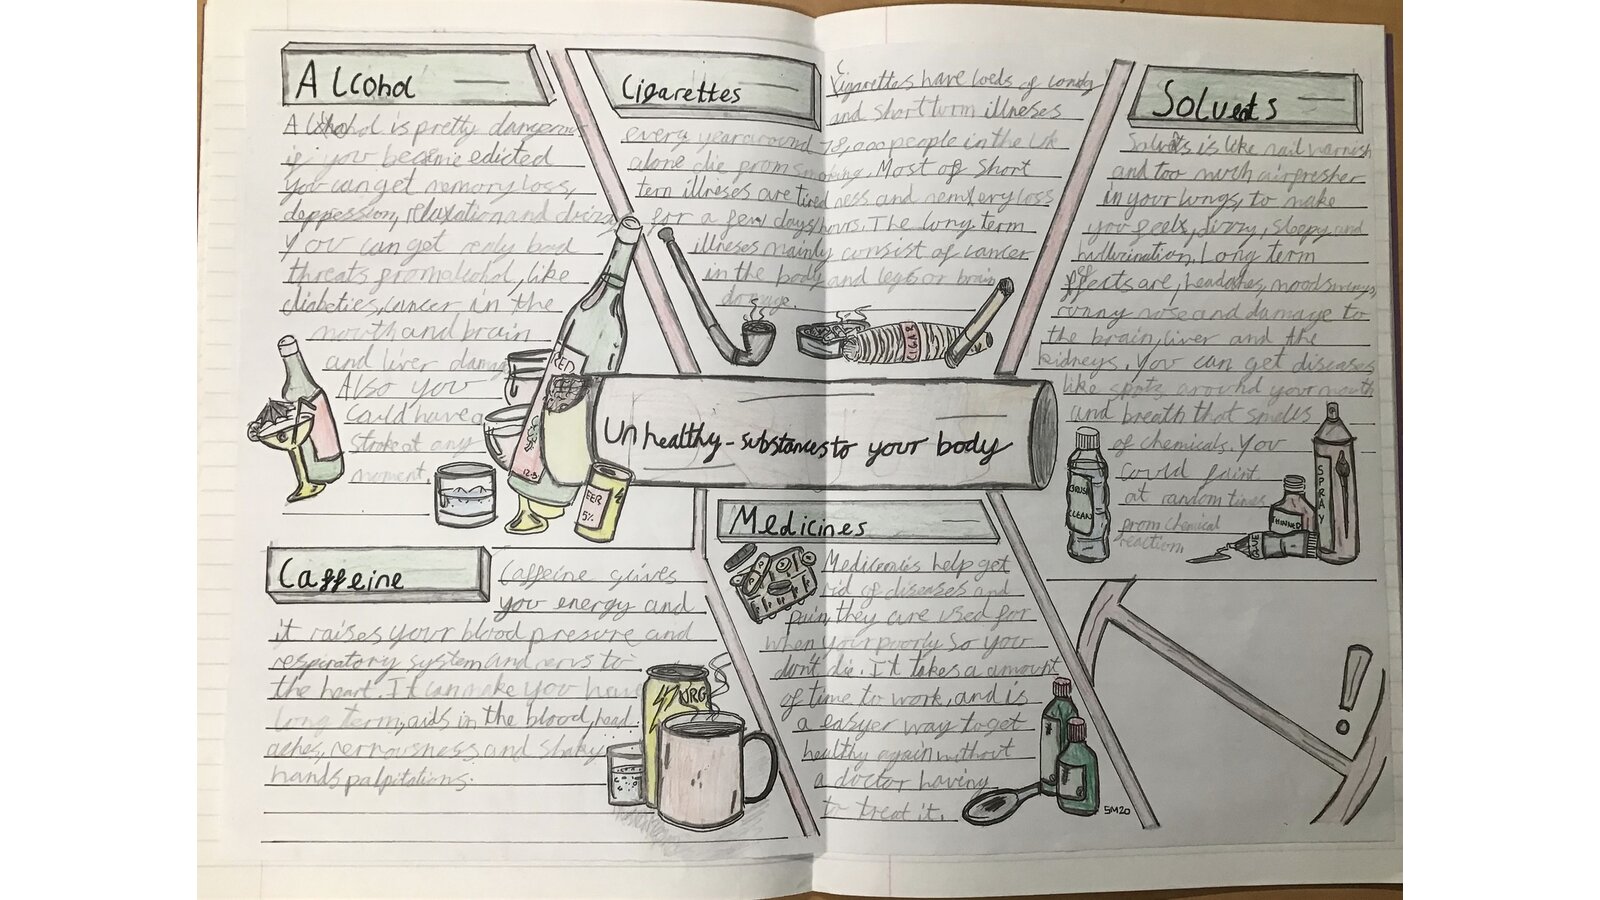 ALcohol
Alchohol is pretty dangerous
if you became edicted
you can get memory loss,
deppession, relaxation and dizzy
You can get realy bad
threats from alcohol, like
diabeties, cancer in the
mouth and brain
and liver damag
Also you
Could have a
Stroke at any
moment.
RED
12.5
BEER
5%
Cigarettes
Cigarettes have loeds of
and short turm illneses
every year around 78,000 people in the UK
alone die from smoking. Most of Short
tern illneses are tired ness and memery loss
for a few days/hours. The long term
illneses mainly consist of cancer
in the body and legs or brain
damage.
CIGAR
Solvents
Solvents is like nail varnish
and too much airfresher
in your lungs, to make
you feels, dizzy, sleepy and
hullucination. Long term
effects are, headaches, moodswings,
runny nose and damage to
the brain, liver and the
kidneys. You can get diseases
like spots around your mouth
and breath that smells
of chemicals. You
could faint
at random times
from chemical
reaction.
BRUSH
CLEAN
THINNED
GLUE
SPRAY
Unhealthy-substances to your body
Caffeine
Caffeine gives
you energy and
it raises your blood presure and
respiratory system and nervs to
the heart. It can make you have
long term, aids in the blood, head
aches, nervousness, and shaky
hands palpitations.
NRG
Medicines
Medicenies help get
rid of diseases and
pain, they are used for
when your poorly so you
don't die. It takes a amount
of time to work, and is
a easyer way to get
healthy again without
a doctor having
to treat it.
SM20
!